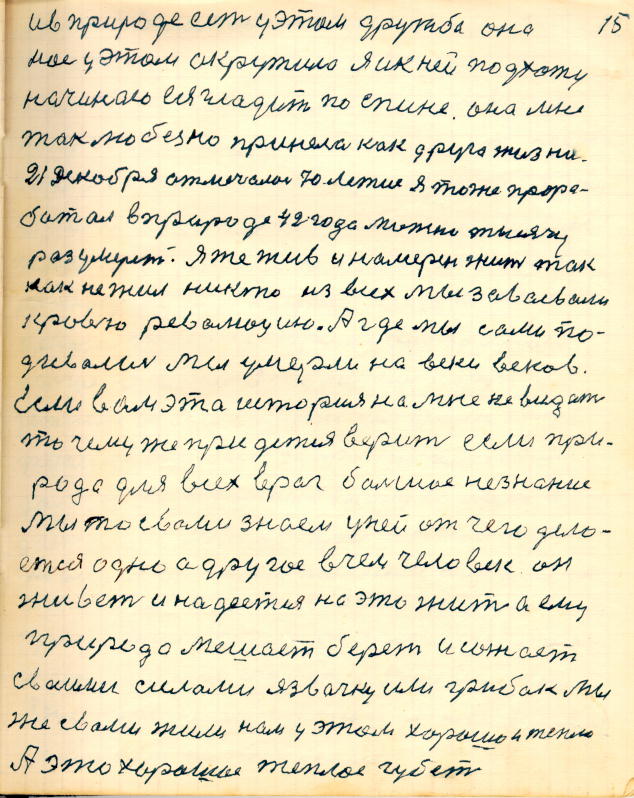 15
и в природе есть у этом дружба она
мое у этом окружило Я и к ней подхожу
начинаю ея гладить по спине. она мне
так любезно принела как друга жизни.
21 Декобря отмечалос 70 летие Я тоже прора-
ботал в природе 42 года можно тысячу
раз умереть. Я же жив и намерен жить так
как нежил никто из всех мы заваевали
кровью революцию. А где мы сами по-
девалис мы умерли на веки веков.
Если вам эта история на мне не видать
то чему же придется верить если при-
рода для всех враг болшое незнание
мы то свами знаем у ней от чего дело-
ется одно а другое в чем человек он
живет и надеется на это жить а ему
природа мешает берет и сожает
своими силами язвачку или грибок мы
же свами жили нам у этом хорошо и тепло
А это хорошое теплое губеть